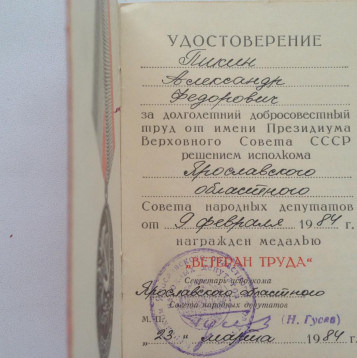 УДОСТОВЕРЕНИЕ
Пикин
Александр
Федорович
за долголетний добросовестный
труд от имени Президиума
Верховного Совета СССР
решением исполкома
Ярославского
областного
Совета народных депутатов
от 9 февраля 1984 г.
награжден медалью
„ВЕТЕРАН ТРУДА“
Секретарь исполкома
Ярославского областного
Совета народных депутатов
М.П. (Н. Гусев)
„23“ марта 1984 г.